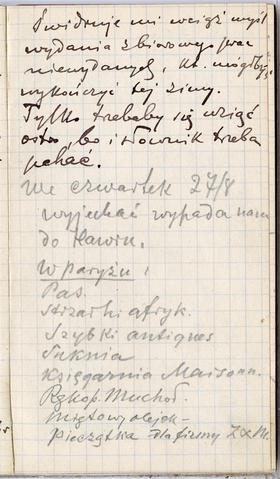 Świdruje mi wciąż myśl
wydania zbiorowego prac
niewydanych, kt. mógłbyś
wykończyć tej zimy.
Tylko trzebaby się wziąć
ostro, bo i słownik trzeba
pchać.
We czwartek 27/8
wyjechać wypada nam
do Hawru.
W Paryżu:
Pas.
strzałki afryk.
Szybki antiques
Suknia
Księgarnia Maisonn.
Rękop. Muchoł.
Miętowy olejek-
Pieczątka dla firmy Z&M.